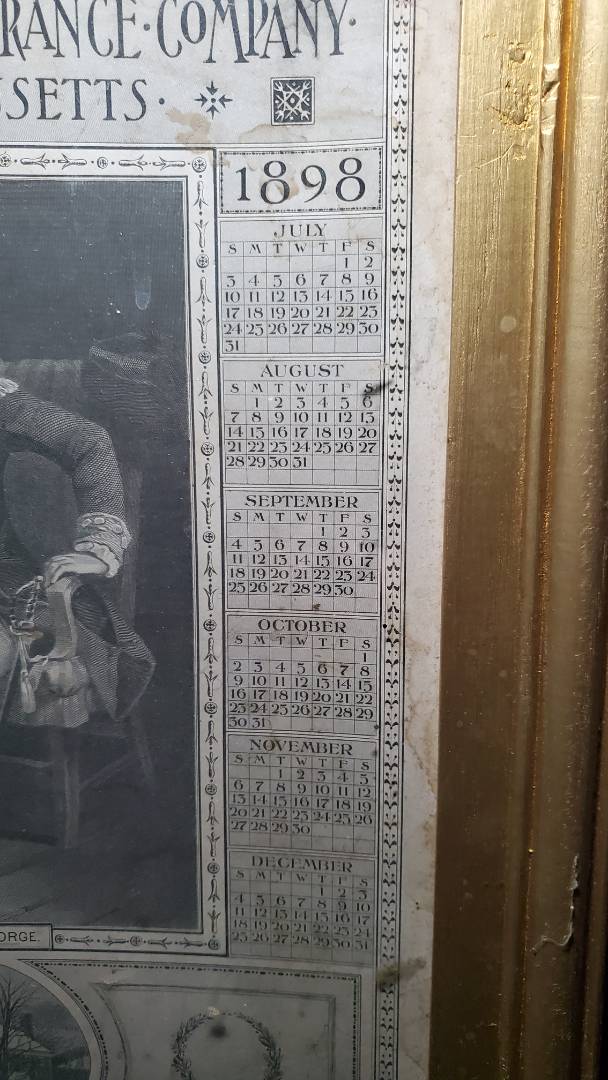 RANCE·COMPANY·
SETTS·
1898
JULY
S M T W T F S
1 2
3 4 5 6 7 8 9
10 11 12 13 14 15 16
17 18 19 20 21 22 23
24 25 26 27 28 29 30
31
AUGUST
S M T W T F S
1 2 3 4 5 6
7 8 9 10 11 12 13
14 15 16 17 18 19 20
21 22 23 24 25 26 27
28 29 30 31
SEPTEMBER
S M T W T F S
1 2 3
4 5 6 7 8 9 10
11 12 13 14 15 16 17
18 19 20 21 22 23 24
25 26 27 28 29 30
OCTOBER
S M T W T F S
1
2 3 4 5 6 7 8
9 10 11 12 13 14 15
16 17 18 19 20 21 22
23 24 25 26 27 28 29
30 31
NOVEMBER
S M T W T F S
1 2 3 4 5
6 7 8 9 10 11 12
13 14 15 16 17 18 19
20 21 22 23 24 25 26
27 28 29 30
DECEMBER
S M T W T F S
1 2 3
4 5 6 7 8 9 10
11 12 13 14 15 16 17
18 19 20 21 22 23 24
25 26 27 28 29 30 31
ORGE.